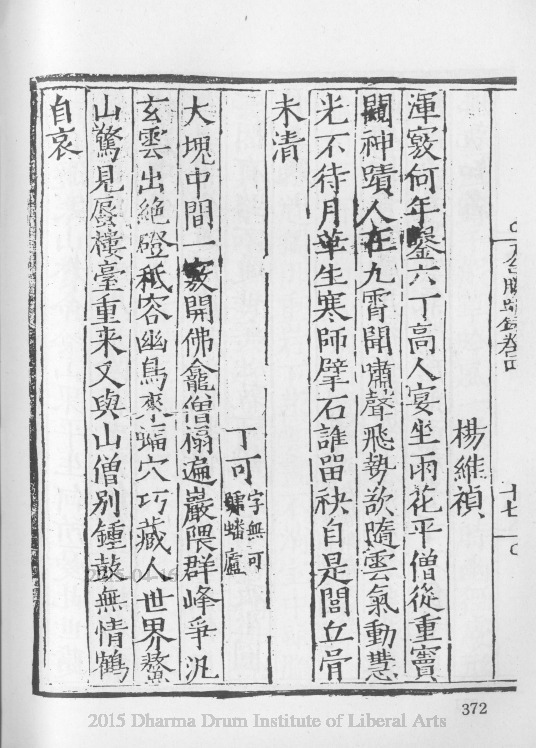 台勝蹟錄卷四 十七
楊維禎
渾竅何年鑿六丁高人宴坐雨花平僧從重竇
闢神蹟人在九霄聞嘯聲飛勢欲隨雲氣動慧
光不待月華生寒師擘石誰畱袂自是閭丘骨
未清
丁可 字無可號蟠廬
大塊中間一竅開佛龕僧榻遍巖隈群峰爭汎
玄雲出絕磴秪容幽鳥來蝠穴巧藏人世界鰲
山驚見蜃樓臺重来又與山僧別鍾鼓無情鶴
自哀
372
2015 Dharma Drum Institute of Liberal Arts